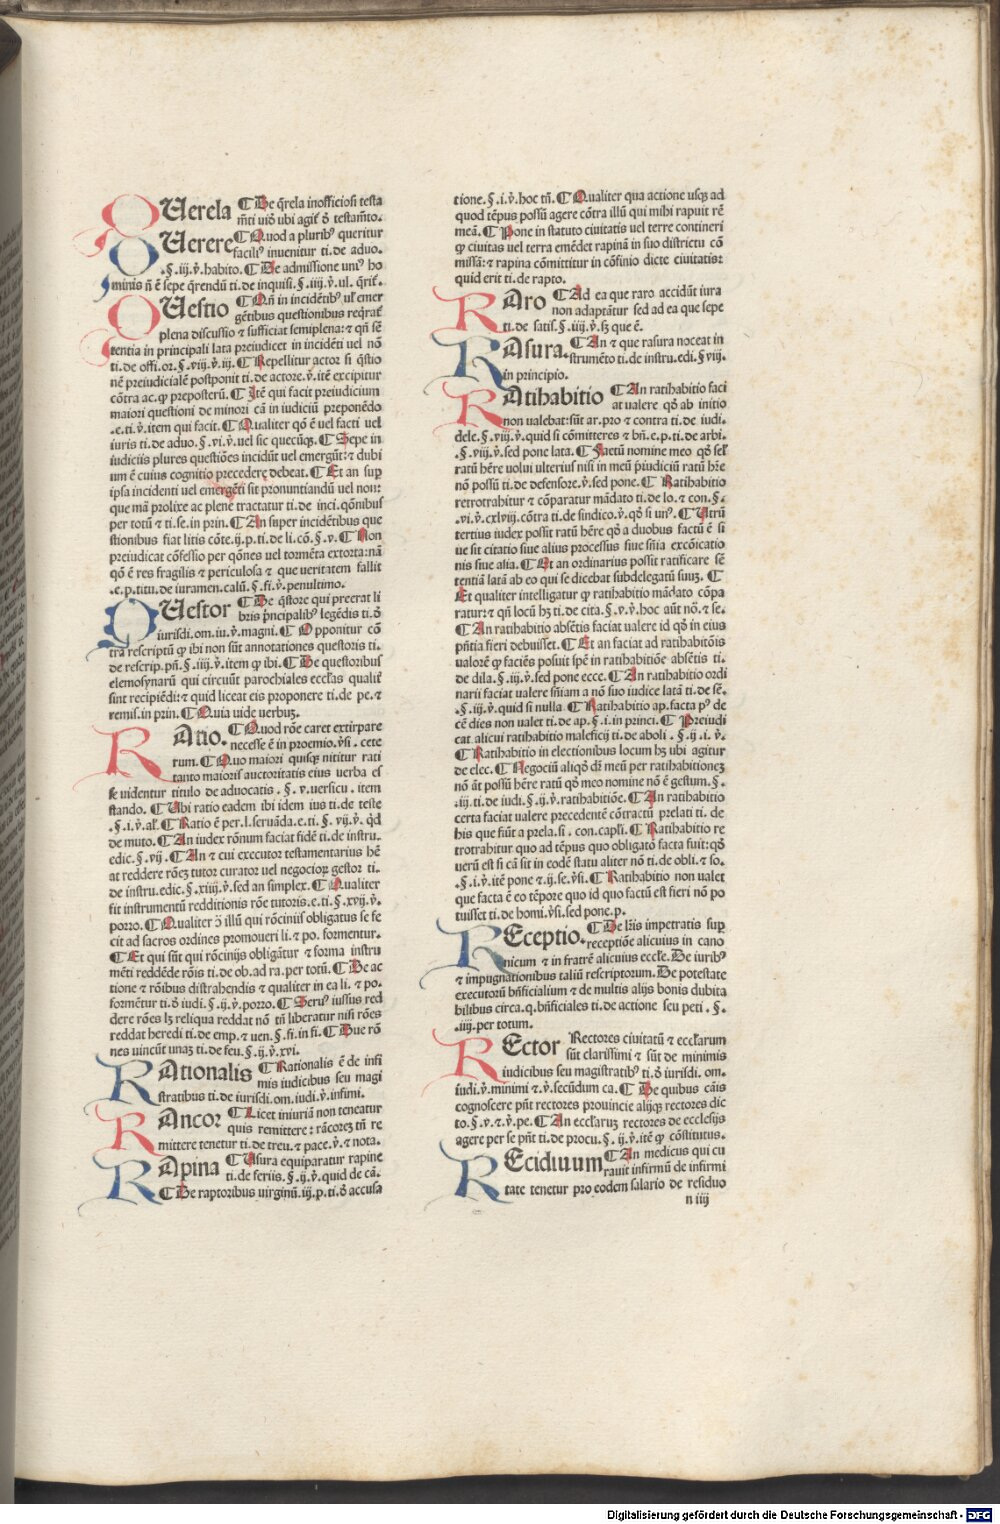 QUerela ¶ De q̄rela inofficiosi testa
m̄ti uīo ubi agit̄ ō testam̄to.
QUerere ¶ Quod a pluribꝰ queritur
faciliꝰ inuenitur ti. de aduo.
.§.iij.v̄. habito. ¶ De admissione uniꝰ ho
minis n̄ ē sepe q̄rendū ti. de inquisi. §.iiij.v̄. ul. q̄rit̄.
QUestio ¶ Qn̄ in incidētibꝰ ul̄ emer
gētibus questionibus reqrat̄
plena discussio ⁊ sufficiat semiplena: ⁊ qn̄ sē
tentia in principali lata preiudicet in incidēti uel nō
ti. de offi. or. §.viij.v̄.iij. ¶ Repellitur actor si q̄stio
nē preiudicialē postponit ti. de actore. v̄. itē excipitur
cōtra ac. ꝙ preposterū. ¶ Itē qui facit preiudicium
maiori questioni de minori cā in iudiciū preponēdo
.e.ti.v̄. item qui facit. ¶ Qualiter qō ē uel facti uel
iuris ti. de aduo. §.vi.v̄. uel sic quecūqꝫ. ¶ Sepe in
iudiciis plures questiōes incidūt uel emergūt: ⁊ dubi
um ē cuius cognitio precedere debeat. ¶ Et an sup̄
ipsa incidenti uel emergēti sit pronuntiandū uel non:
que mā prolixe ac plene tractatur ti. de inci. qōnibus
per totū ⁊ ti. se. in prin. ¶ An super incidētibus que
stionibus fiat litis cōte. ij.p.ti. de li. cō. §.v. ¶ Non
preiudicat cōfessio per qōnes uel tormēta extorta: nā
qō ē res fragilis ⁊ periculosa ⁊ que veritatem fallit
.e.p.titu. de iuramen. calū. §.fi.v̄. penultimo.
QUestor ¶ De q̄store qui preerat li
bris p̄ncipalibꝰ legēdis ti. ō
iurisdi. om. iu. v̄. magni. ¶ Opponitur cō
tra rescriptū ꝙ ibi non sūt annotationes questoris ti.
de rescrip. pn̄. §.iiij.v̄. item ꝙ ibi. ¶ De questoribus
elemosynarū qui circuūt parochiales eccl̄as qualit̄
sint recipiēdi: ⁊ quid liceat eis proponere ti. de pe. ⁊
remis. in prin. ¶ Quia uide verbuꝫ.
RAtio. ¶ Quod rōe caret extirpare
necesse ē in proemio. v̄si. cete
rum. ¶ Quo maiori quisqꝫ nititur rati
tanto maioris auctoritatis eius verba es
se videntur titulo de aduocatis. §.v. uersicu. item
stando. ¶ Ubi ratio eadem ibi idem ius ti. de teste
.§.i.v̄. al̄. ¶ Ratio ē per. l. seruāda. e. ti. §.vij.v̄. qd̄
de muto. ¶ An iudex rōnum faciat fidē ti. de instru.
edic. §.vij. ¶ An ⁊ cui executor testamentarius hē
at reddere rōeꝫ tutor curator uel negocioꝝ gestor ti.
de instru. edic. §.xiiij.v̄. sed an simplex. ¶ Qualiter
fit instrumentū redditionis rōe tutoris. e. ti. §.xvij.v̄.
porro. ¶ Qualiter ꝯ illū qui rōciniis obligatus se fe
cit ad sacros ordines promoueri li. ⁊ po. formentur.
¶ Et qui sūt qui rōcinijs obligātur ⁊ forma instru
mēti reddēde rōis ti. de ob. ad ra. per totū. ¶ De ac
tione ⁊ rōibus distrahendis ⁊ qualiter in ea li. ⁊ po.
formētur ti. ō iudi. §.ij.v̄. porro. ¶ Seruꝰ iussus red
dere rōes lꝫ reliqua reddat nō tn̄ liberatur nisi rōes
reddat heredi ti. de emp. ⁊ uen. §.fi. in fi. ¶ Due rō
nes uincūt unaꝫ ti. de feu. §.ij.v̄.xvi.
RAtionalis ¶ Rationalis ē de infi
mis iudicibus seu magi
stratibus ti. de iurisdi. om. iudi. v̄. infimi.
RAncor ¶ Licet iniuriā non teneatur
quis remittere: rācoreꝫ tn̄ re
mittere tenetur ti. de treu. ⁊ pace. v̄. ⁊ nota.
RApina ¶ Usura equiparatur rapine
ti. de feriis. §.ij.v̄. quid de cā.
¶ De raptoribus virginū. iij.p.ti. ō accusa
tione. §.i.v̄. hoc tn̄. ¶ Qualiter qua actione usqꝫ ad
quod tēpus possū agere cōtra illū qui mihi rapuit rē
meā. ¶ Pone in statuto ciuitatis uel terre contineri
ꝙ ciuitas uel terra emēdet rapinā in suo districtu cō
missā: ⁊ rapina cōmittitur in cōfinio dicte ciuitatis:
quid erit ti. de rapto.
RAro ¶ Ad ea que raro accidūt iura
non adaptātur sed ad ea que sepe
ti. de satis. §.iiij.v̄. sꝫ que ē.
RAsura. ¶ An ⁊ que rasura noceat in
strumēto ti. de instru. edi. §.viij.
in principio.
RAtihabitio ¶ An ratihabitio faci
at ualere qō ab initio
non ualebat: sūt ar. pro ⁊ contra ti. de iudi.
dele. §.viij.v̄. quid si cōmitteres ⁊ bn̄. e.p.ti. de arbi.
.§.viij.v̄. sed pone lata. ¶ Factū nomine meo qō sel̄
ratū hēre uolui ulterius nisi in meū p̄iudiciū ratū hr̄e
nō possū ti. de defensore. v̄. sed pone. ¶ Ratihabitio
retrotrahitur ⁊ cōparatur mādato ti. de lo. ⁊ con. §.
.vi.v̄.cxlviij. cōtra ti. de sindico. v̄. qō si unꝰ. ¶ Utrū
tertius iudex possit ratū hēre qō a duobus factū ē si
ue sit citatio siue alius processus siue sn̄ia excōicatio
nis siue alia. ¶ Et an ordinarius possit ratificare sē
tentiā latā ab eo qui se dicebat subdelegatū suuꝫ. ¶
Et qualiter intelligatur ꝙ ratihabitio mādato cōpa
ratur: ⁊ qn̄ locū hꝫ ti. de cita. §.v.v̄. hoc aūt nō. ⁊ se.
¶ An ratihabitio absētis faciat ualere id qō in eius
pn̄tia fieri debuisset. ¶ Et an faciat ad ratihabitōis
valorē ꝙ faciēs posuit spē in ratihabitiōe absētis ti.
de dila. §.iij.v̄. sed pone ecce. ¶ An ratihabitio ordi
narii faciat ualere sn̄iam a nō suo iudice latā ti. de sē.
.§.iij.v̄. quid si nulla. ¶ Ratihabitio ap. facta pꝰ de
cē dies non ualet ti. de ap. §.i. in princi. ¶ Preiudi
cat alicui ratihabitio maleficij ti. de aboli. §.ij.i.v̄.
¶ Ratihabitio in electionibus locum hꝫ ubi agitur
de elec. ¶ Negociū aliqō dr̄ meū per ratihabitioneꝫ
nō āt possū hēre ratū qō meo nomine nō ē gestum. §.
.iij. ti. de iudi. §.ij.v̄. ratihabitiōe. ¶ An ratihabitio
certa faciat ualere precedentē cōtractū prelati ti. de
his que fiūt a prela. si. con. capl̄i. ¶ Ratihabitio re
trotrahitur quo ad tēpus quo obligatō facta fuit: qō
uerū est si cā sit in eodē statu aliter nō ti. de obli. ⁊ so.
.§.i.v̄. itē pone ⁊ ij.se. v̄si. ¶ Ratihabitio non ualet
que facta ē eo tēpore quo id quo factū est fieri nō po
tuisset ti. de homi. v̄si. sed pone. p.
REceptio. ¶ De lr̄is impetratis sup̄
receptiōe alicuius in cano
nicum ⁊ in fratrē alicuius eccl̄e. De iuribꝰ
⁊ impugnationibus taliū rescriptorum. De potestate
executorū bn̄ficialium ⁊ de multis alijs bonis dubita
bilibus circa. q. bn̄ficiales ti. de actione seu peti. §.
.iiij. per totum.
REctor Rectores ciuitatū ⁊ eccl̄arum
sūt clarissimi ⁊ sūt de minimis
iudicibus seu magistratibꝰ ti. ō iurisdi. om.
iudi. v̄. minimi ⁊ v̄. secūdum ca. ¶ De quibus cāis
cognoscere pn̄t rectores prouincie alijqꝫ rectores dic
to. §.v. ⁊ v̄. pe. ¶ An eccl̄aruꝫ rectores de ecclesijs
agere per se pn̄t ti. de procu. §.ij.v̄. itē ꝙ cōstitutus.
REcidiuum ¶ An medicus qui cu
rauit infirmū de infirmi
tate tenetur pro eodem salario de residuo
n iiij
Digitalisierung gefördert durch die Deutsche Forschungsgemeinschaft - DFG